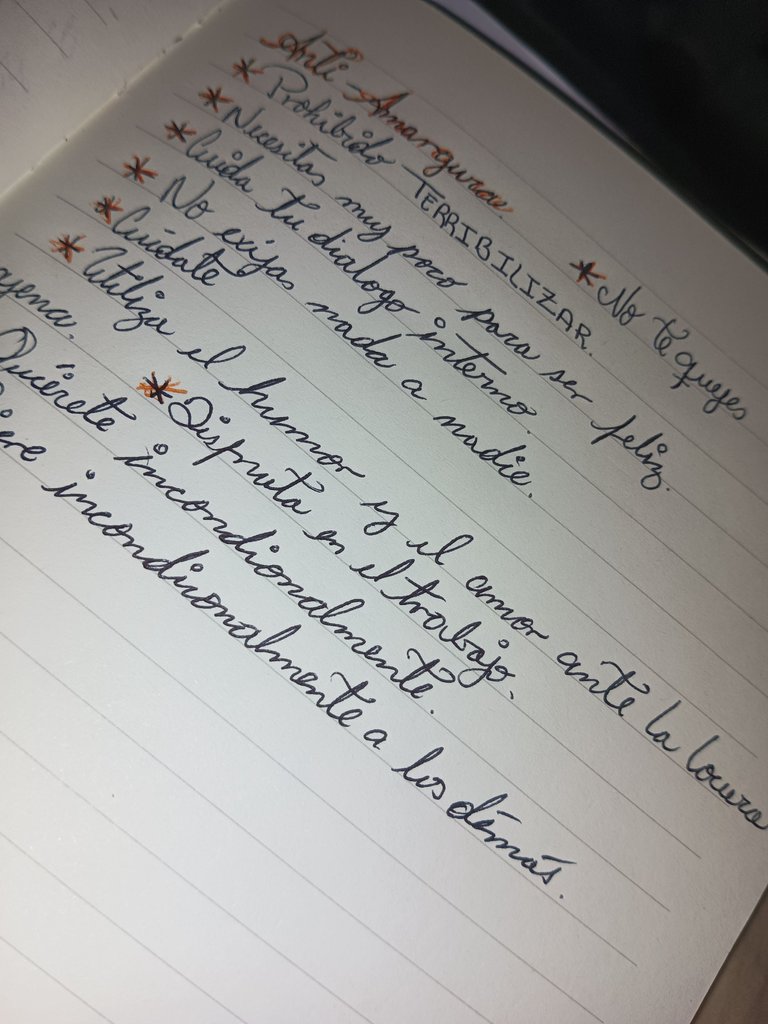 Anti-Amargura.
* Prohibido TERRIBILIZAR.
* Necesitas muy poco para ser feliz.
* Cuida tu dialogo interno.
* No exijas nada a nadie.
* Cuídate * No te quejes
* Utiliza el humor y el amor ante la locura
ajena. * Disfruta en el trabajo.
Quiérete incondionalmente.
iere incondicionalmente a los demás.